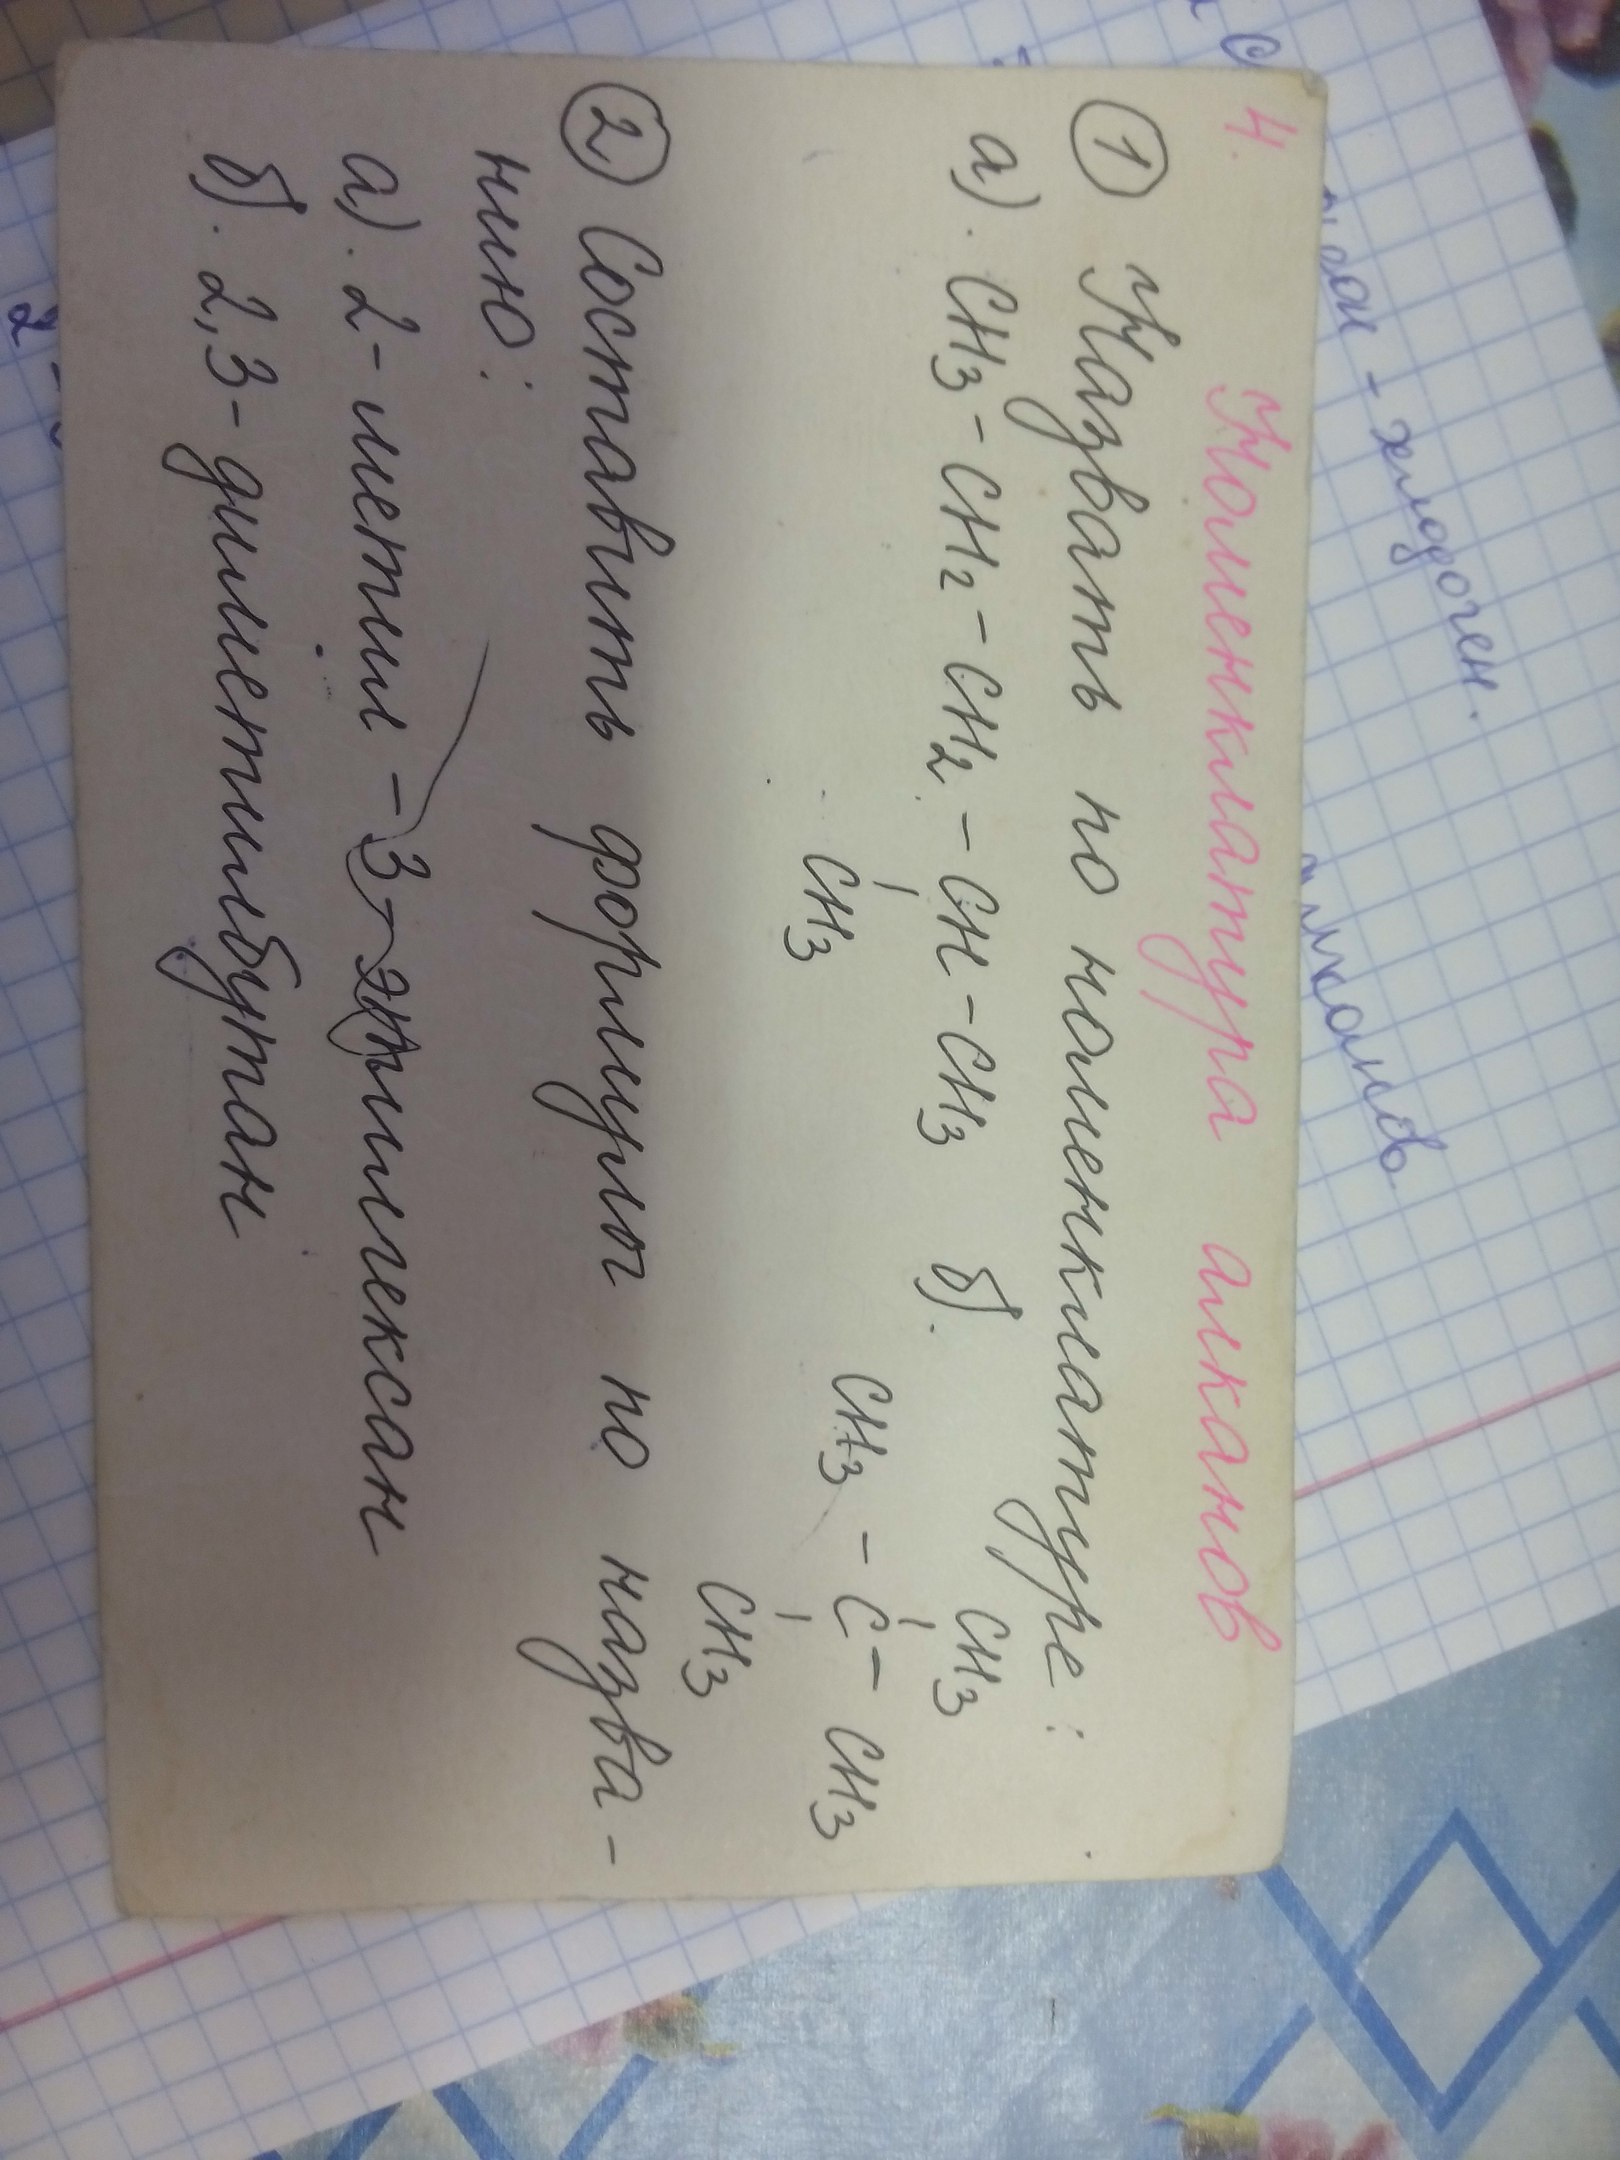 4. Номенклатура алканов
① Назвать по номенклатуре:
а). CH3 - CH2 - CH2 - CH - CH3
CH3
б).
CH3
CH3 - C - CH3
CH3
② Составить формулы по назва-
нию:
а). 2 - метил - 3 - этилгексан
б). 2,3 - диметилбутан
алканов